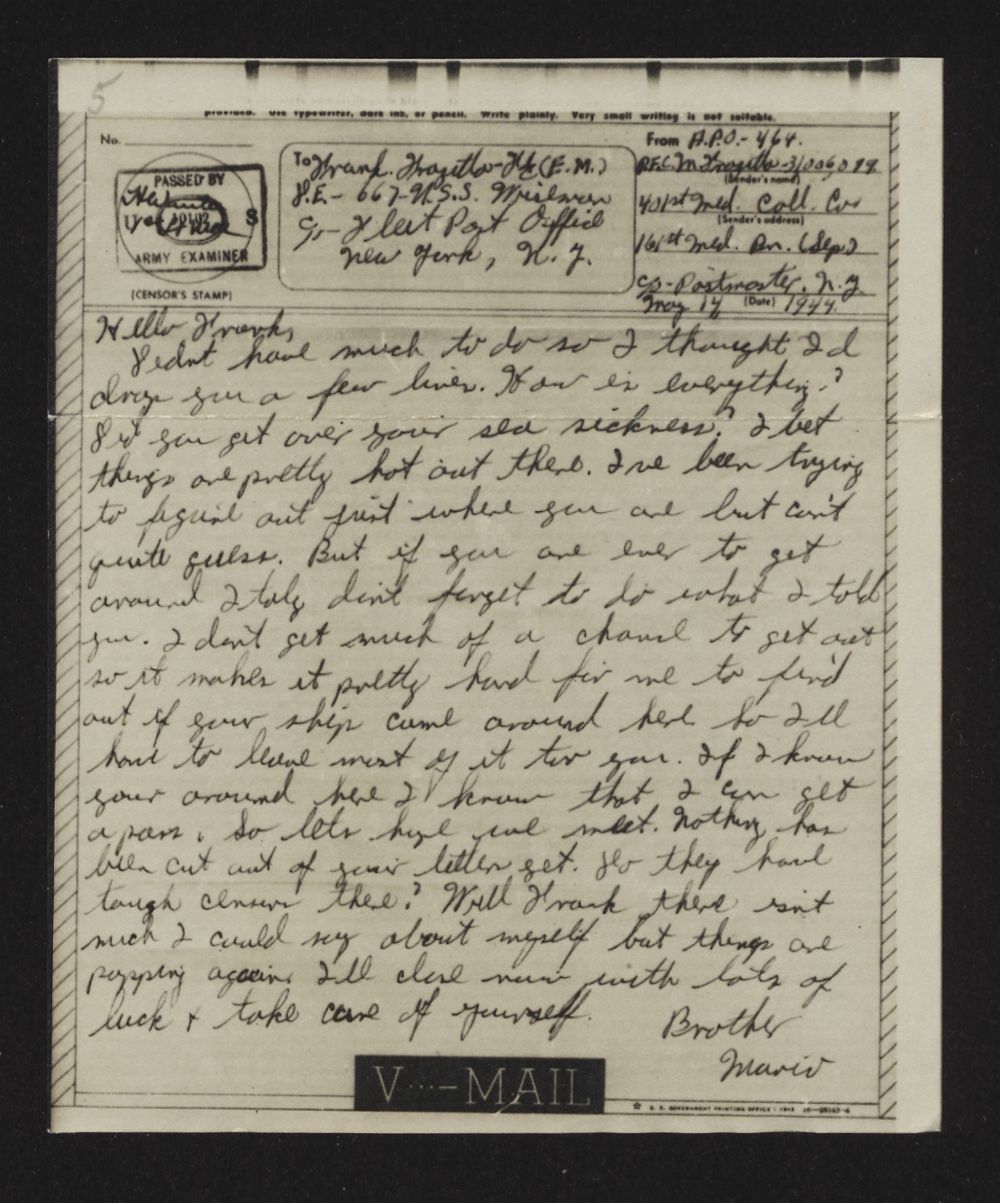 5
provided. Use typewriter, dark ink, or pencil. Write plainly. Very small writing is not suitable.
No.
PASSED BY
S
ARMY EXAMINER
(CENSOR'S STAMP)
To
Frank
(E.M.)
D.E- 667-U.S.S. Wiseman
c/o- Fleet Post Office
New York, N.Y.
From A.P.O.- 464.
P.F.C. M
(Sender's name)
401st Med. Coll. Co
(Sender's address)
161st Med. Bn. (Sep.)
c/o- Postmaster, N.Y.
May 14 (Date) 1944.
Hello Frank,
Didnt have much to do so I thought I'd
drop you a few lines. How is everything?
Did you get over your sea sickness? I bet
things are pretty hot out there. I've been trying
to figure out just where you are but can't
quite guess. But if you are ever to get
around Italy don't forget to do what I told
you. I don't get much of a chance to get out
so it makes it pretty hard for me to find
out if your ship came around here. So I'll
have to leave most of it to you. If I know
your around here I know that I can get
a pass. So lets hope we meet. Nothing has
been cut out of your letter yet. Do they have
tough censors there? Well Frank there isn't
much I could say about myself but things are
popping again. I'll close now with lots of
luck + take care of yourself.
Brother
Mario
V···—MAIL
U. S. GOVERNMENT PRINTING OFFICE : 1943 16—28143-4